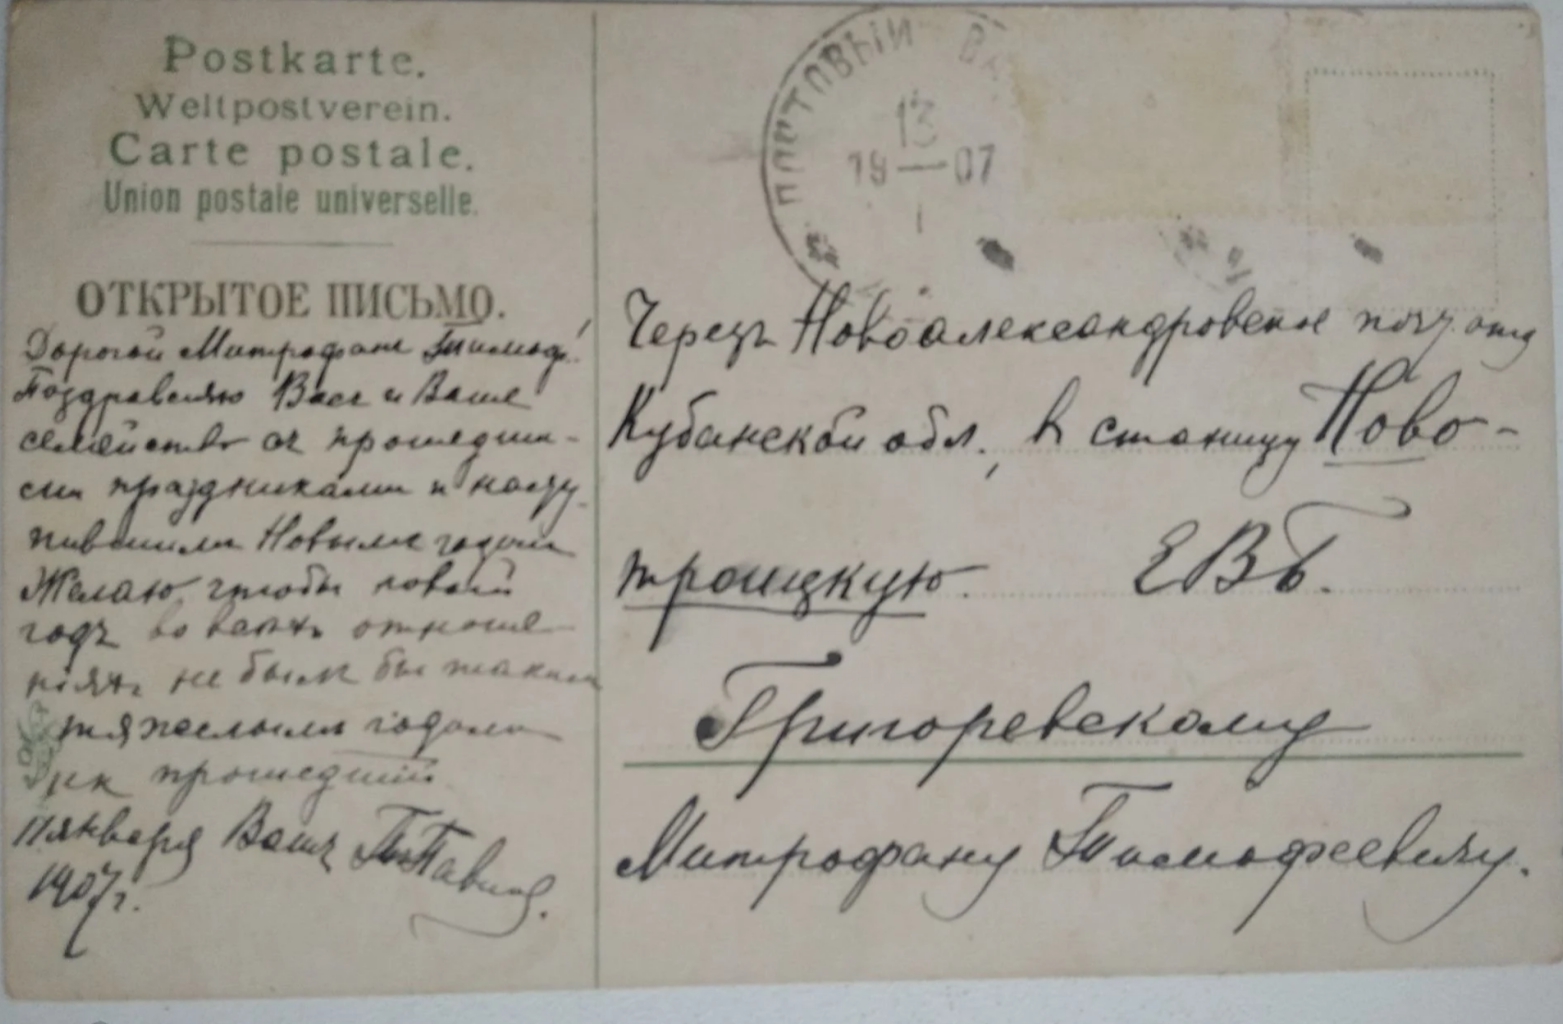 Postkarte.
Weltpostverein.
Carte postale.
Union postale universelle.
ОТКРЫТОЕ ПИСЬМО.
Дорогой Митрофанъ Тимоф.!
Поздравляю Васъ и Ваше
семейство съ прошедши-
ми праздниками и насту-
пившимъ Новымъ годомъ
Желаю, чтобы новый
годъ во всѣхъ отноше-
ніяхъ не былъ бы такимъ
тяжелымъ годомъ
какъ прошедшій
11 января Вашъ
1907 г.
ПОЧТОВЫЙ ВА
13
19—07
I
Черезъ Новоалександровское почт. отд
Кубанской обл., въ станицу Ново-
троицкую. ЕВБ.
Григоревскому
Митрофану Тимофеевичу.